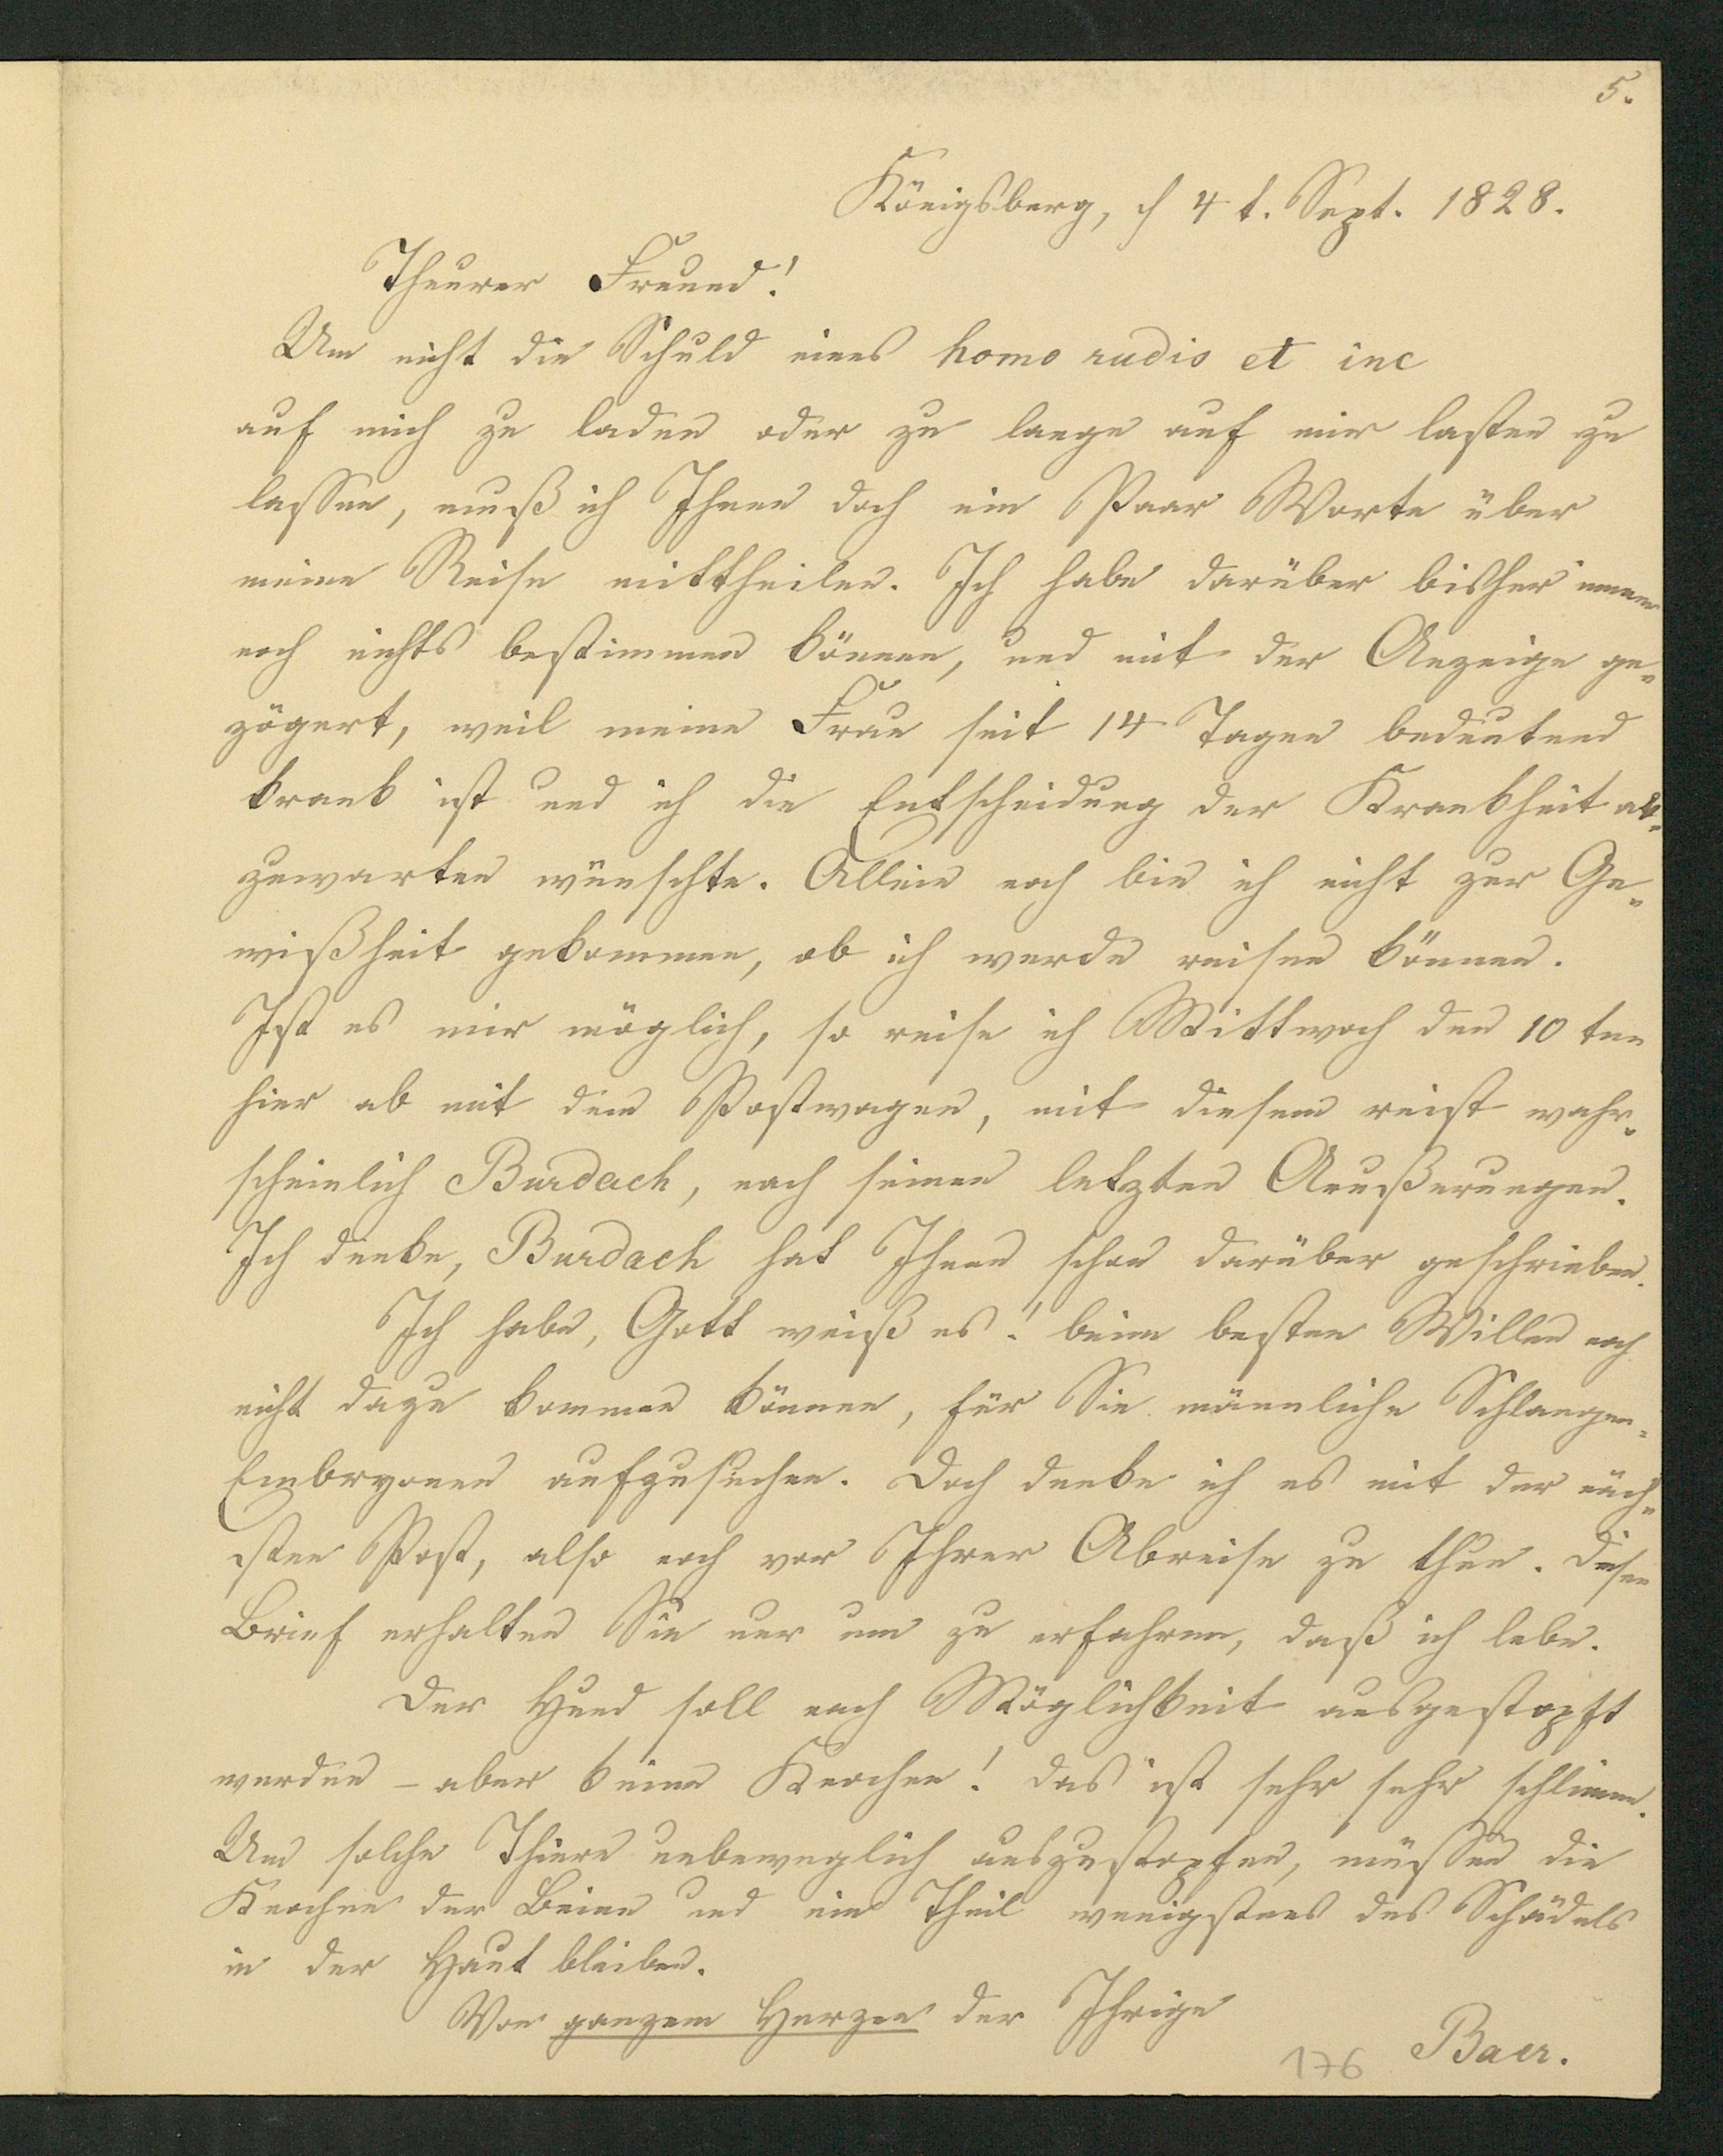 5.
Königsberg, d 4 t. Sept. 1828.
Theurer Freund!
Um nicht die Schuld eines homo rudis et inc
auf mich zu laden oder zu lange auf mir lasten zu
lassen, muß ich Ihnen doch ein Paar Worte über
meine Reise mittheilen. Ich habe darüber bisher immer
noch nichts bestimmen können, und mit der Anzeige ge-
zögert, weil meine Frau seit 14 Tagen bedeutend
krank ist und ich die Entscheidung der Krankheit ab-
zuwarten wünschte. Allein noch bin ich nicht zur Ge-
wißheit gekommen, ob ich werde reisen können.
Ist es mir möglich, so reise ich Mittwoch den 10 ten
hier ab mit dem Postwagen, mit diesem reist wahr-
scheinlich Burdach, nach seinen letzten Aeußerungen.
Ich denke, Burdach hat Ihnen schon darüber geschrieben.
Ich habe, Gott weiß es! beim besten Willen noch
nicht dazu kommen können, für Sie männliche Schlangen-
Embryonen aufzusuchen. Doch denke ich es mit der näch-
sten Post, also noch vor Ihrer Abreise zu thun. Diesen
Brief erhalten Sie nur um zu erfahren, daß ich lebe.
Der Hund soll nach Möglichkeit ausgestopft
werden – aber keine Knochen! das ist sehr sehr schlimm.
Um solche Thiere unbeweglich auszustopfen, müssen die
Knochen der Beine und ein Theil wenigstens des Schädels
in der Haut bleiben.
Von ganzem Herzen der Ihrige
Baer.
176